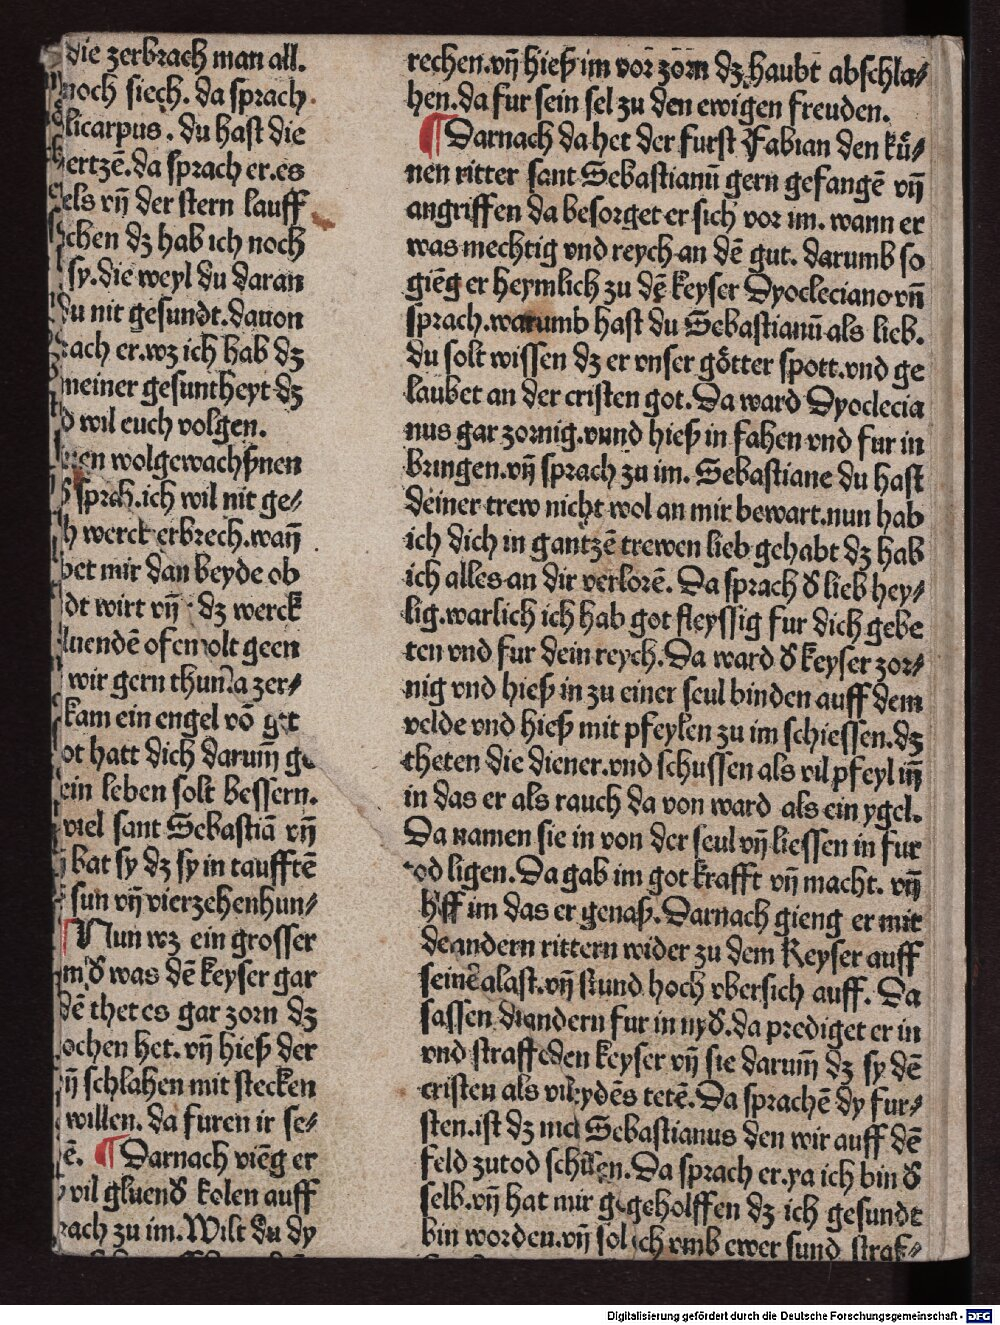 die zerbrach man all.
noch siech. da sprach
licarpus. du hast die
ertzē. da sprach er. es
els vn̄ der stern lauff
chen dz hab ich noch
sy. die weyl du daran
du nit gesundt. dauon
rach er. wz ich hab dz
meiner gesuntheyt dz
d wil euch volgen.
wolgewachßnen
sprach. ich wil nit ge⸗
h werck erbrech. wan̄
bet mir dan beyde ob
dt wirt vn̄ dz werck
luendē ofen wolt geen
wir gern thun. Da zer⸗
kam ein engel vō got
ot hatt dich darum̄ ge
ein leben solt bessern.
viel sant Sebastiā vn̄
bat sy dz sy in taufftē
sun vn̄ vierzehenhun⸗
¶ Nun wz ein grosser
was dē keyser gar
dē thet es gar zorn dz
ochen het. vn̄ hieß der
n̄ schlahen mit stecken
willen. da furen ir se⸗
ē. ¶ Darnach viēg er
vil gluenđ kolen auff
rach zu im. Wilt du dy
rechen. vn̄ hieß im vor zorn dz haubt abschla⸗
hen. da fur sein sel zu den ewigen freuden.
¶ Darnach da het der furst Fabian den kuͤ⸗
nen ritter sant Sebastianū gern gefangē vn̄
angriffen da besorget er sich vor im. wann er
was mechtig vnd reych an dē gut. darumb so
giēg er heymlich zu dē keyser Dyocleciano vn̄
sprach. warumb hast du Sebastianū als lieb.
du solt wissen dz er vnser goͤtter spott. vnd ge
laubet an der cristen got. Da ward Dyoclecia
nus gar zornig. vund hieß in fahen vnd fur in
bringen. vn̄ sprach zu im. Sebastiane du hast
deiner trew nicht wol an mir bewart. nun hab
ich dich in gantzē trewen lieb gehabt dz hab
ich alles an dir verlorē. Da sprach đ lieb hey⸗
lig. warlich ich hab got fleyssig fur dich gebe
ten vnd fur dein reych. Da ward đ keyser zor⸗
nig vnd hieß in zu einer seul binden auff dem
velde vnd hieß mit pfeylen zu im schiessen. dz
theten die diener. vnd schussen als vil pfeyl in̄
in das er als rauch da von ward als ein ygel.
Da namen sie in von der seul vn̄ liessen in fur
tod ligen. Da gab im got krafft vn̄ macht. vn̄
hilff im das er genaß. Darnach gieng er mit
de andern rittern wider zu dem Keyser auff
seinē palast. vn̄ stund hoch vbersich auff. Da
sassen die andern fur in nyđ. da prediget er in
vnd straffe den keyser vn̄ sie darum̄ dz sy dē
cristen als vil leydēs tetē. Da sprachē dy fur⸗
sten. ist dz nicht Sebastianus den wir auff dē
feld zutod schussen. Da sprach er. ya ich bin đ
selb. vn̄ hat mir got geholffen dz ich gesundt
bin worden. vn̄ sol ich vmb ewer sund straf⸗